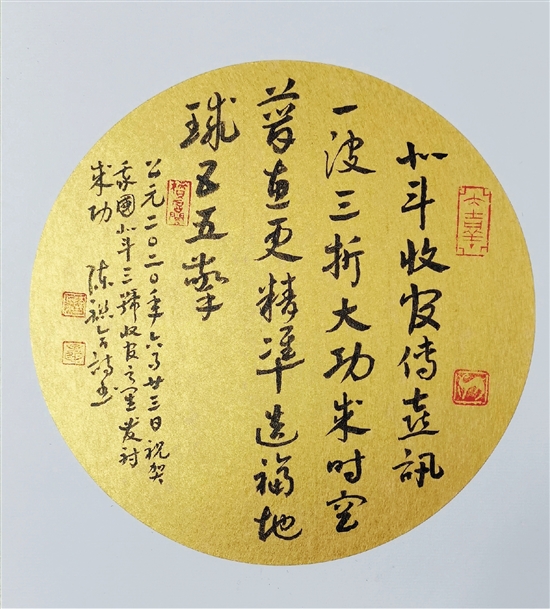 北斗收官傳喜訊
一波三折大功成时空
普惠更精準造福地
球 五擎
公元二〇二〇年六月廿三日祝贺
我國北斗三號收官之星发射
成功 陈祺 诗书